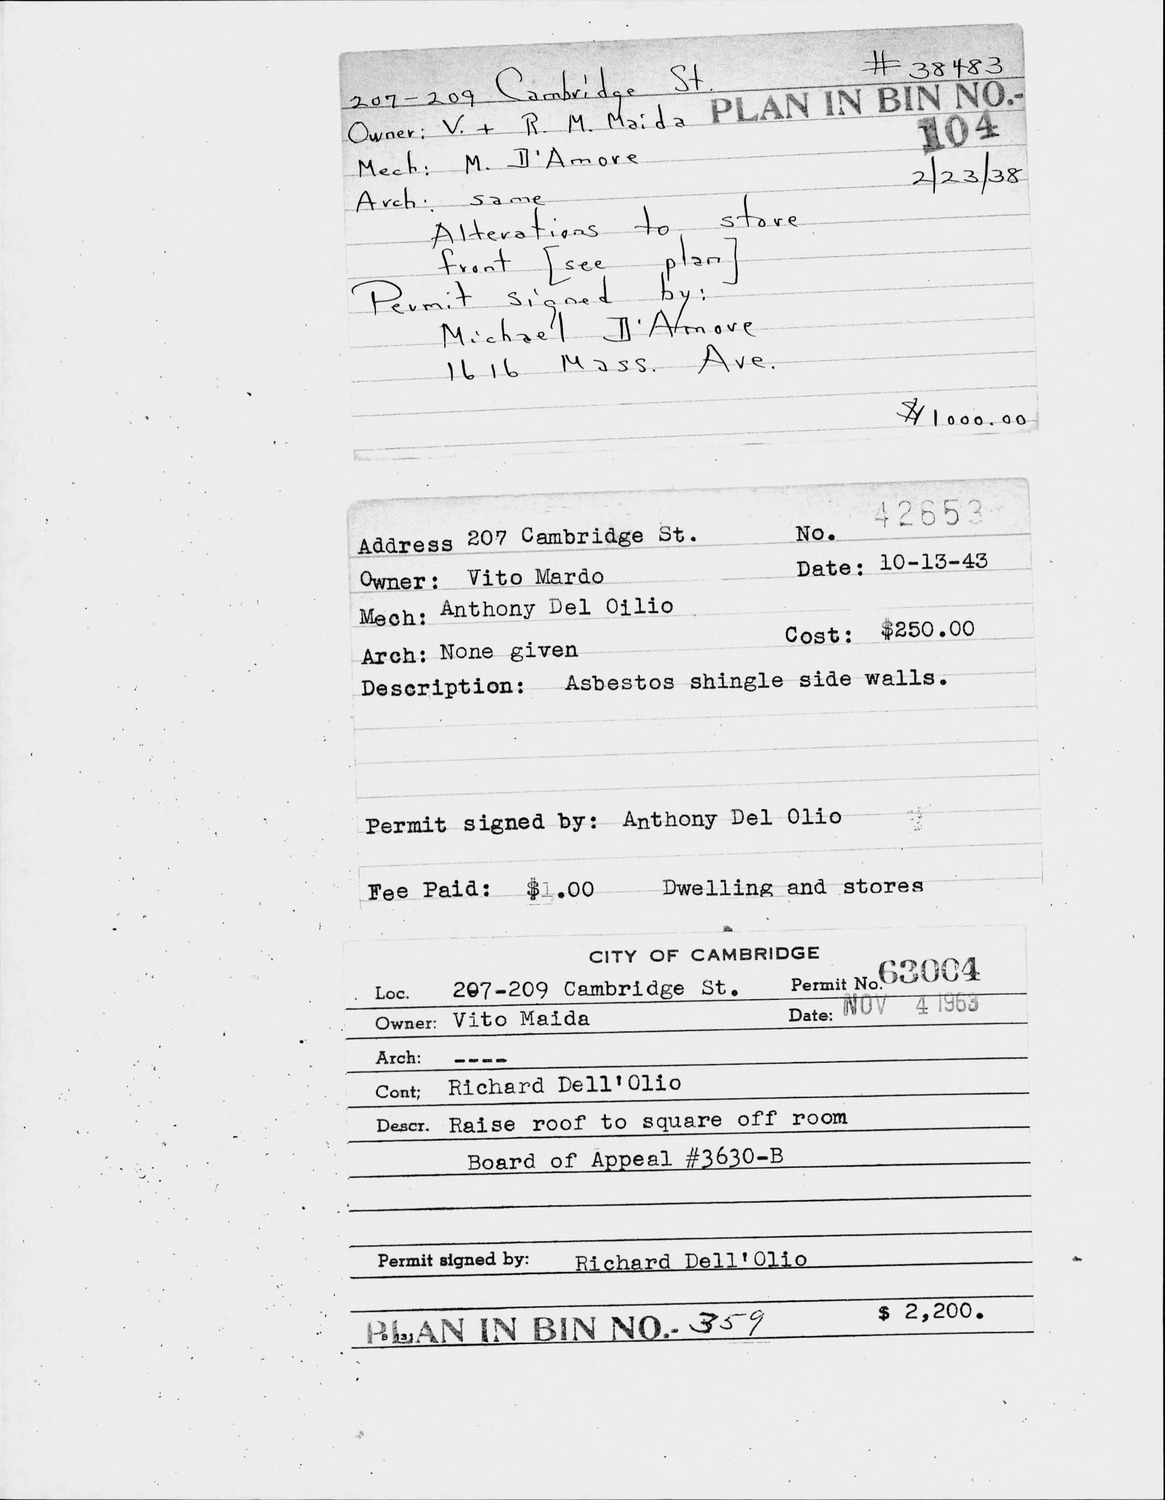 207-209 Cambridge St. # 38483
PLAN IN BIN NO.-
104
Owner: V. + R. M. Maida
Mech: M. D'Amore
2/23/38
Arch: same
Alterations to store
front [see plan]
Permit signed by:
Michael D'Amore
1616 Mass. Ave.
$1000.00
Address 207 Cambridge St. No. 42653
Owner: Vito Mardo Date: 10-13-43
Mech: Anthony Del Oilio
Arch: None given Cost: $250.00
Description: Asbestos shingle side walls.
Permit signed by: Anthony Del Olio
Fee Paid: $1.00 Dwelling and stores
CITY OF CAMBRIDGE
Loc. 207-209 Cambridge St. Permit No. 63004
Owner: Vito Maida Date: NOV 4 1963
Arch: ----
Cont; Richard Dell'Olio
Descr. Raise roof to square off room
Board of Appeal #3630-B
Permit signed by: Richard Dell'Olio
$ 2,200.
PLAN IN BIN NO.- 359